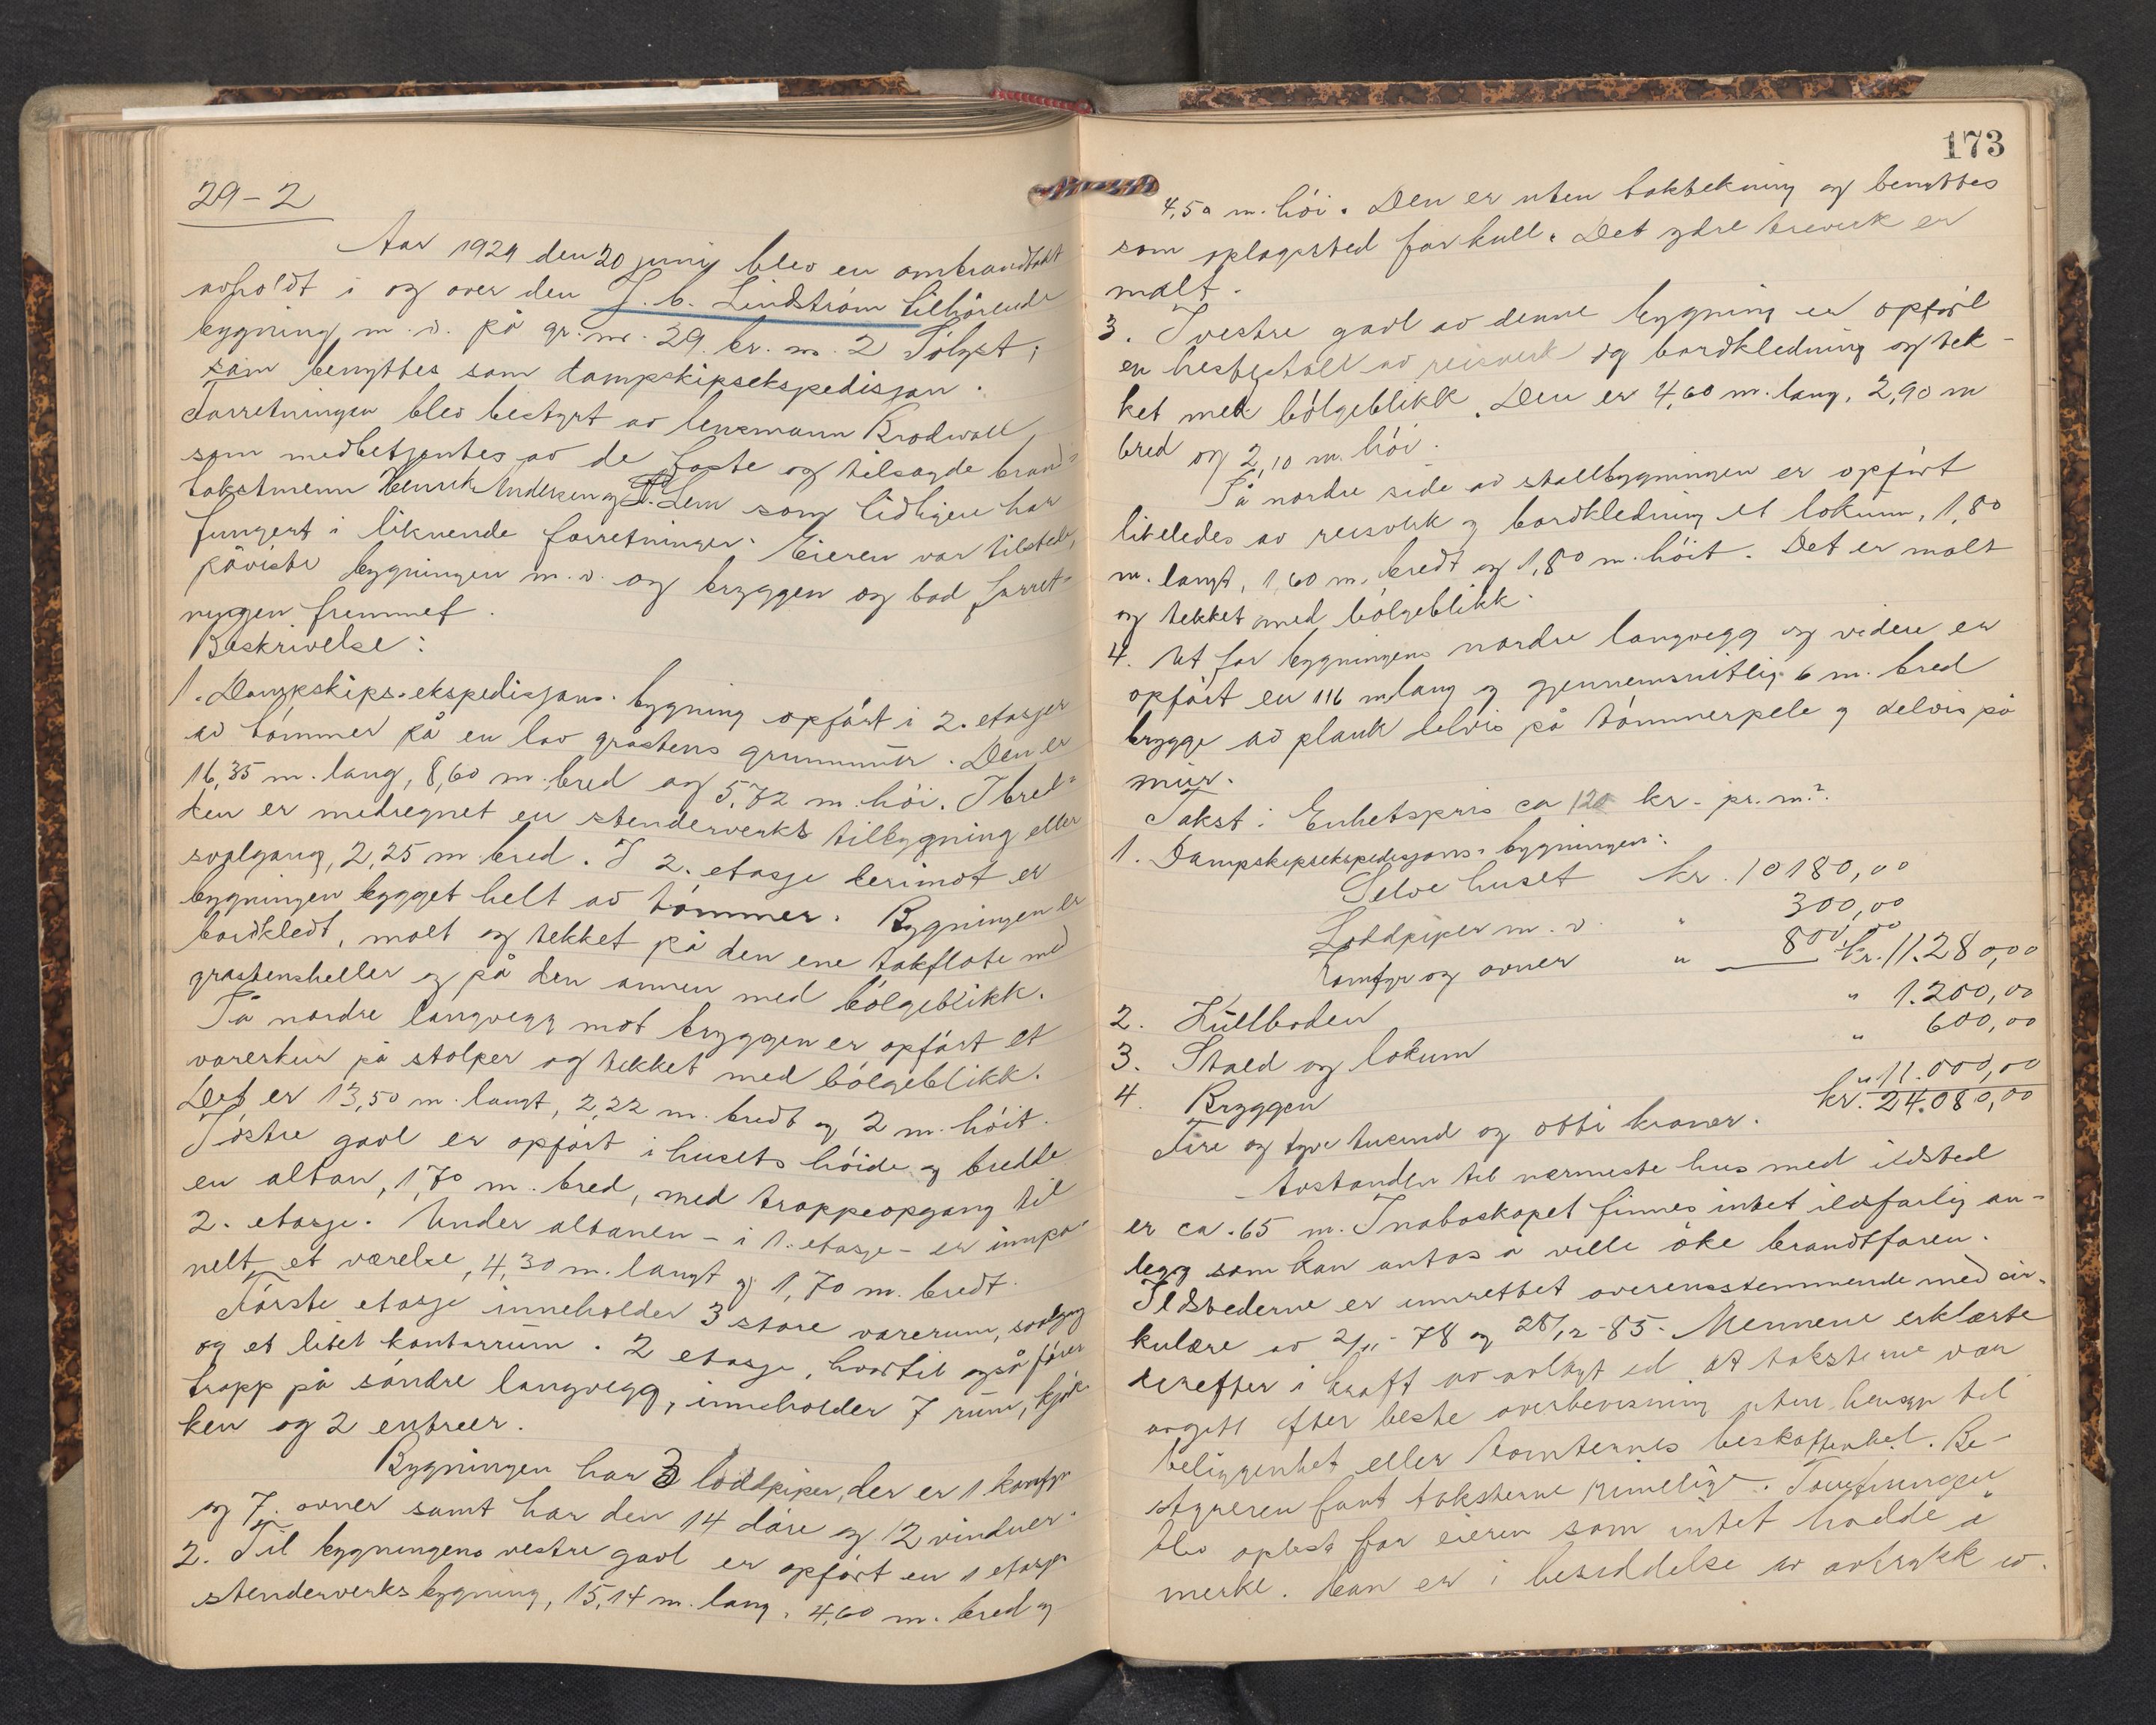 29-2
Aar 1929 den 20 juni blev en ombrandtakst
avholdt i og over den J. C. Lindström tilhörende
bygning m. v. på gr. nr. 29 br. nr. 2
som benyttes som dampskipsekspedisjon.
Forretningen blev bestyrt av lensmann Brodwall
som medbetjentes av de faste og tilsagde brand-
takstmenn Henrik Andersen og Lem som tidligere har
fungert i liknende forretninger. Eieren var tilstede,
påviste bygningen m. v. og bryggen og bad forret-
ningen fremmet.
Beskrivelse:
1. Dampskips-ekspedisjons-bygning opfört i 2. etasjer
av tömmer på en lav gråstens grunnmur. Den er
16,35 m. lang, 8,60 m. bred og 5,72 m. höi. I bred-
den er medregnet en stenderverks tilbygning eller
svalgang, 2,25 m bred. I 2. etasje derimot er
bygningen bygget helt av tömmer. Bygningen er
bordkledt, malt og tekket på den ene takflate med
gråstensheller og på den annen med bölgeblikk.
På nordre langvegg mot bryggen er opfört et
vareskur på stolper og tekket med bölgeblikk.
Det er 13,50 m. langt, 2,22 m. bredt og 2 m. höit.
I östre gavl er opfört i husets höide og bredde
en altan, 1,70 m. bred, med trappeopgang til
2. etasje. Under altanen - i 1. etasje - er innpa-
nelt et værelse, 4,30 m. langt og 1,70 m. bredt.
Förste etasje inneholder 3 store varerum, svalgang
og et litet kontorrum. 2 etasje, hvortil også förer
trapp på söndre langvegg, inneholder 7 rum, kjök-
ken og 2 entreer.
Bygningen har 3 loddpiper, der er 1 komfyr
og 7 ovner samt har den 14 döre og 12 vinduer.
2. Til bygningens vestre gavl er opfört en 1 etasjes
stenderverks bygning, 15,14 m. lang, 4,60 m. bred og
173
4,50 m. höi. Den er uten taktekning og benyttes
som oplagssted for kull. Det ydre treverk er
malt.
3. I vestre gavl av denne bygning er opfört
en hestestall av reisverk og bordkledning og tek-
ket med bölgeblikk. Den er 4,60 m. lang, 2,90 m
bred og 2,10 m. höi.
På nordre side av stallbygningen er opfört
likeledes av reisverk og bordkledning et lokum, 1,80
m. langt, 1,60 m. bredt og 1,80 m. höit. Det er malt
og tekket med bölgeblikk.
4. Ut for bygningens nordre langvegg og videre er
opfört en 116 m lang og gjennemsnitlig 6 m. bred
brygge av plank delvis på tömmerpele og delvis på
mur.
Takst: Enhetspris ca 120 kr. pr. m².
1. Dampskipsekspedisjons-bygningen:
Selve huset kr. 10180,00
Loddpiper m. v. " 300,00
Komfyr og ovner " 800,00 kr. 11.280,00
2. Kullboden " 1.200,00
3. Stald og lokum " 600,00
4. Bryggen " 11.000,00
kr. 24.080,00
Fire og tyve tusind og otti kroner.
Avstanden til nærmeste hus med ildsted
er ca. 65 m. I naboskapet finnes intet ildsfarlig an-
legg som kan antas å ville öke brandfaren.
Ildstederne er innrettet overensstemmende med cir-
kulære av 2/11-78 og 28/12-85. Mennene erklærte
derefter i kraft av avlagt ed at taksterne var
avgitt efter beste overbevisning uten hensyn til
beliggenhet eller tomternes beskaffenhet. Be-
styreren fant taksterne rimelige. Forretningen
blev oplest for eieren som intet hadde å
merke. Han er i besiddelse av avtrykk av